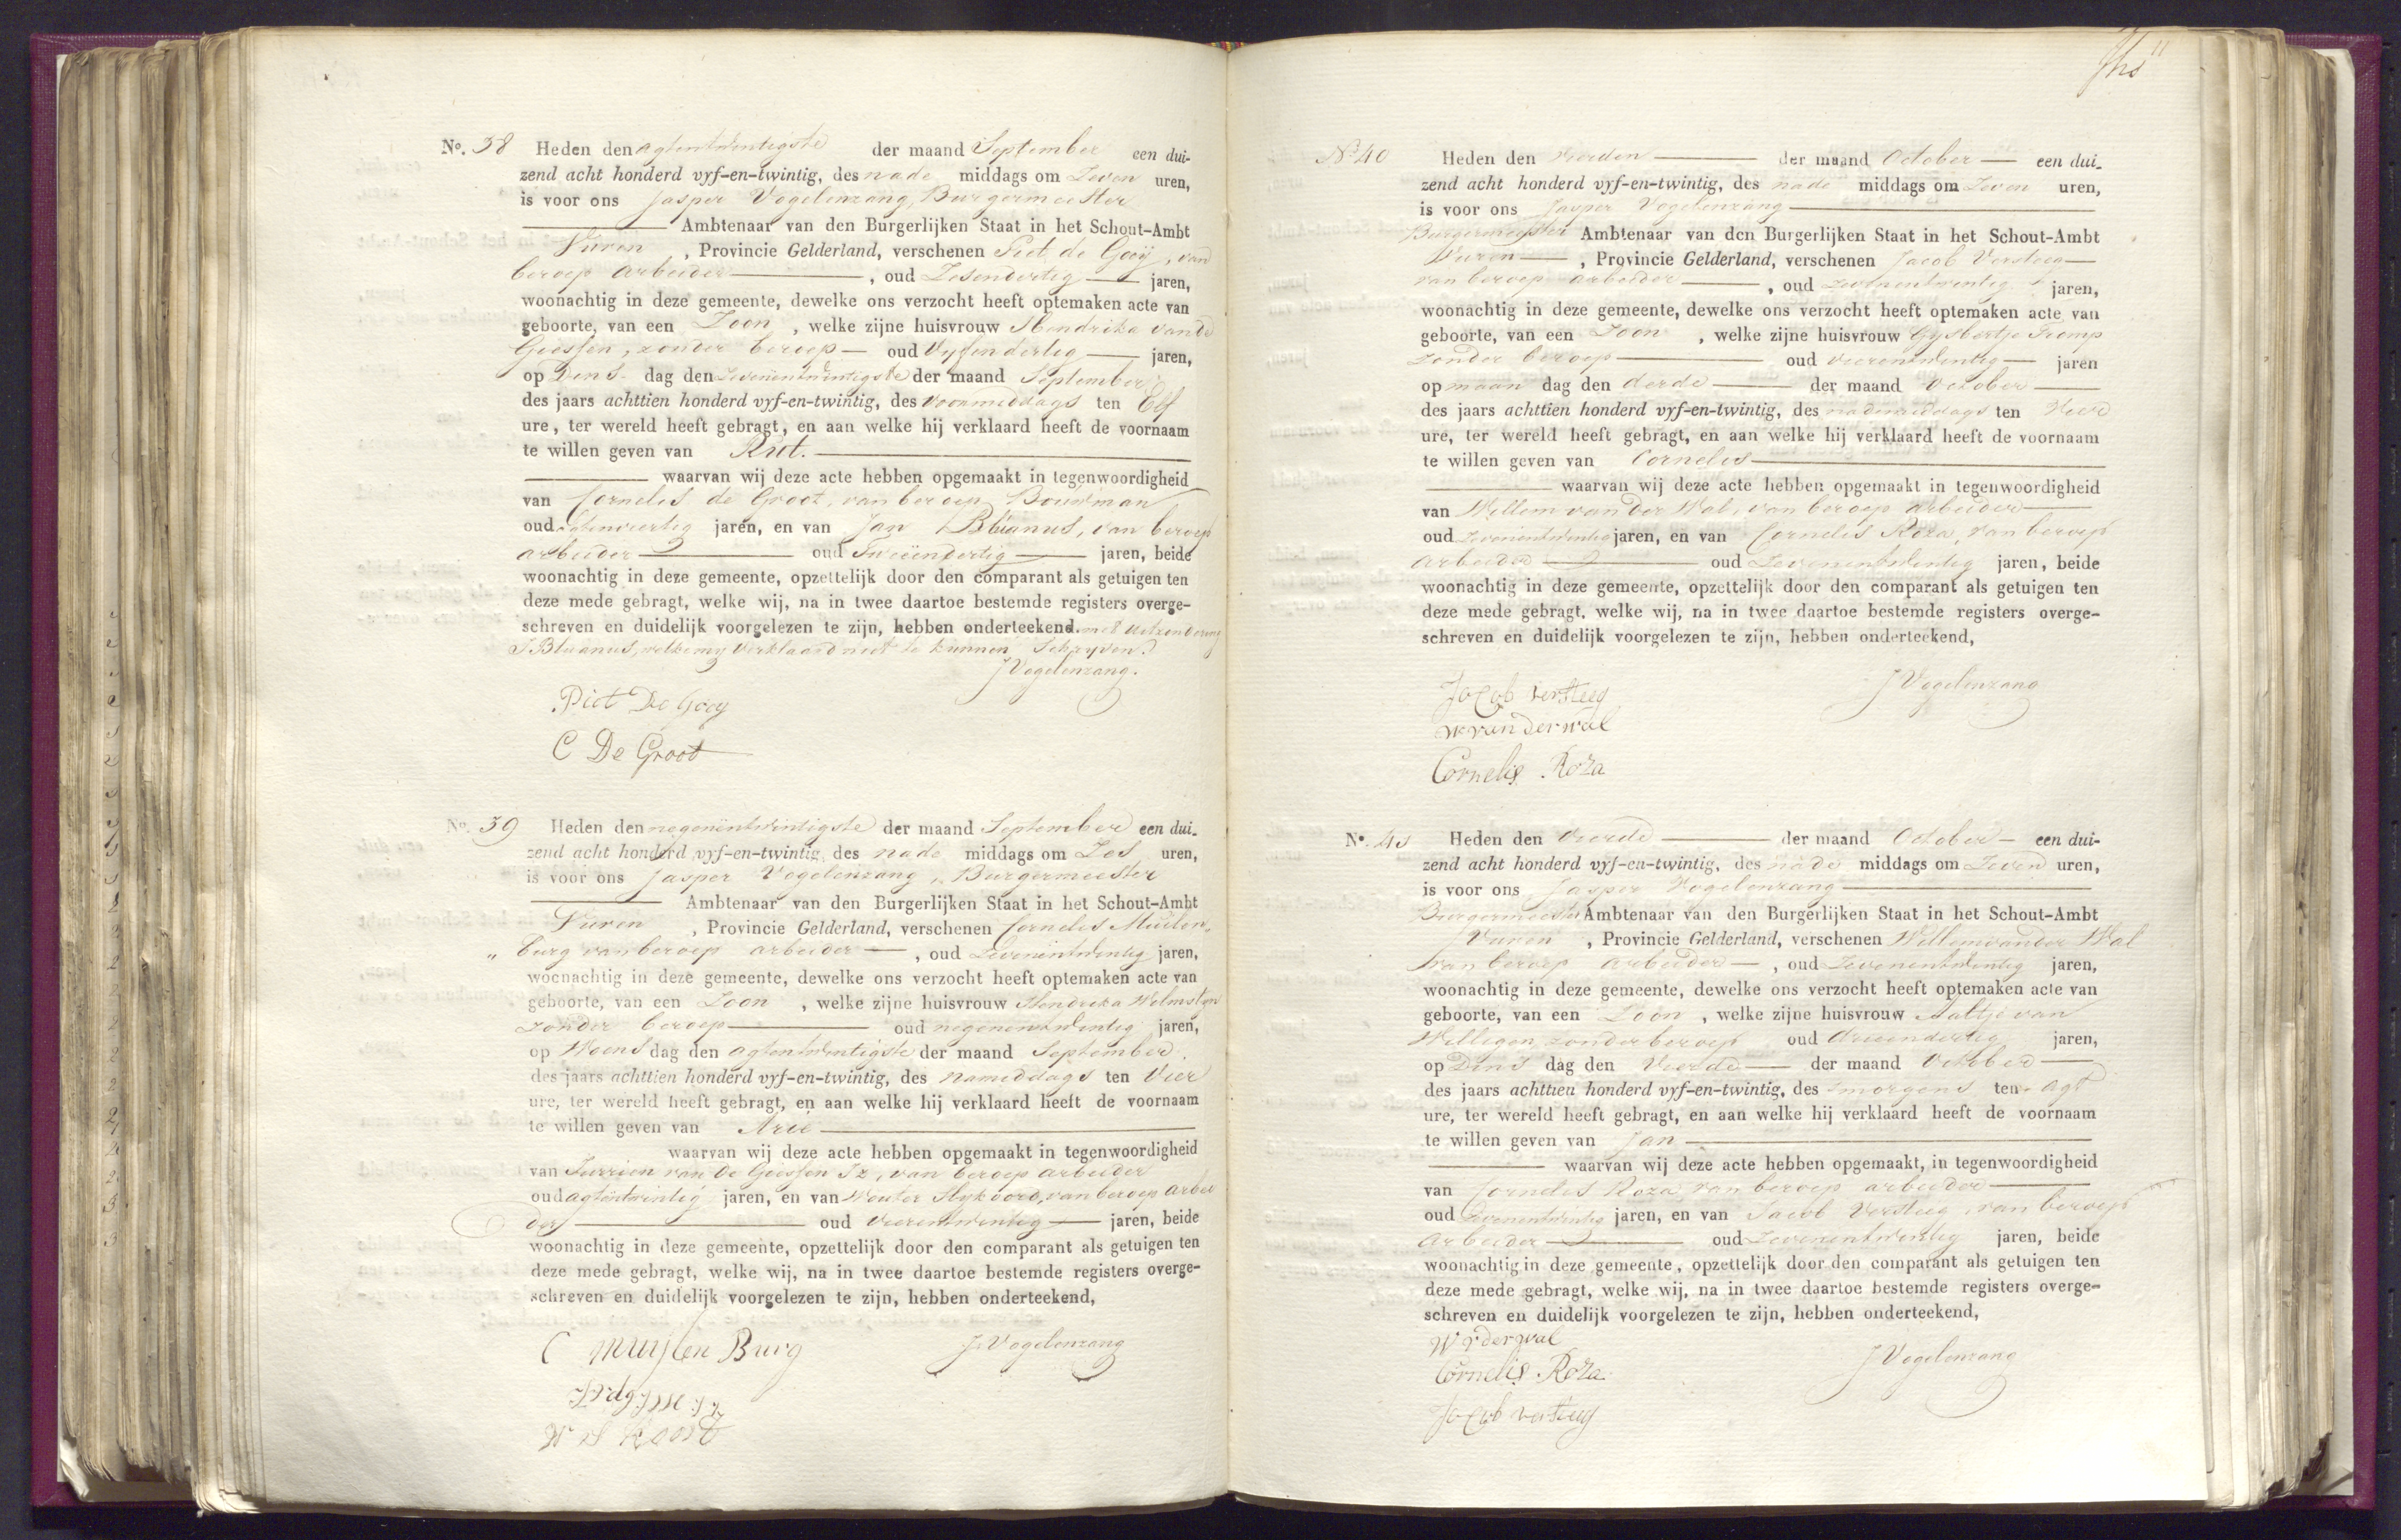 No. 38 Heden den agtentwintigste der maand September een dui-
zend acht honderd vyf-en-twintig, des nade middags om Zeven uren,
is voor ons Jasper Vogelenzang, Burgermeester
Ambtenaar van den Burgerlijken Staat in het Schout-Ambt
Vuren, Provincie Gelderland, verschenen Piet de Gooÿ, van
beroep arbeider, oud Zesendertig jaren,
woonachtig in deze gemeente, dewelke ons verzocht heeft optemaken acte van
geboorte, van een Zoon, welke zijne huisvrouw Hendrika van de
Giessen, zonder beroep oud Vyfendertig jaren,
op Dens dag den Zevenentwintigste der maand September
des jaars achttien honderd vyf-en-twintig, des voormiddags ten Elf
ure, ter wereld heeft gebragt, en aan welke hij verklaard heeft de voornaam
te willen geven van Rut.
waarvan wij deze acte hebben opgemaakt in tegenwoordigheid
van Cornelis de Groot, van beroep Bouwman
oud agtenveertig jaren, en van Jan Bluanus, van beroep
arbeider oud Tweeëndertig jaren, beide
woonachtig in deze gemeente, opzettelijk door den comparant als getuigen ten
deze mede gebragt, welke wij, na in twee daartoe bestemde registers overge-
schreven en duidelijk voorgelezen te zijn, hebben onderteekend. met uitzondering
J Bluanus, welke my verklaard niet te kunnen Schryven.
J Vogelenzang.
Piet De Gooy
C De Groot
No. 39 Heden den negenentwintigste der maand September een dui-
zend acht honderd vyf-en-twintig, des nade middags om Zes uren,
is voor ons Jasper Vogelenzang, Burgermeester
Ambtenaar van den Burgerlijken Staat in het Schout-Ambt
Vuren, Provincie Gelderland, verschenen Cornelis Muilen„
„burg van beroep arbeider, oud Zevenentwintig jaren,
woonachtig in deze gemeente, dewelke ons verzocht heeft optemaken acte van
geboorte, van een Zoon, welke zijne huisvrouw Hendrika Welmstyn
zonder beroep oud negenentwintig jaren,
op Woens dag den agtentwintigste der maand September
des jaars achttien honderd vyf-en-twintig, des nameddags ten Vier
ure, ter wereld heeft gebragt, en aan welke hij verklaard heeft de voornaam
te willen geven van Arie
waarvan wij deze acte hebben opgemaakt in tegenwoordigheid
van Jurrien van de Giessen Jz, van beroep arbeider
oud agtentwintig jaren, en van Wouter Slykoord, van beroep arbei
der oud vierentwintig jaren, beide
woonachtig in deze gemeente, opzettelijk door den comparant als getuigen ten
deze mede gebragt, welke wij, na in twee daartoe bestemde registers overge-
schreven en duidelijk voorgelezen te zijn, hebben onderteekend,
C Muylen Burg J Vogelenzang
11
No 40 Heden den Vierden der maand October een dui-
zend acht honderd vyf-en-twintig, des nade middags om Zeven uren,
is voor ons Jasper Vogelenzang
Burgermeester Ambtenaar van den Burgerlijken Staat in het Schout-Ambt
Vuren, Provincie Gelderland, verschenen Jacob Versteeg
van beroep arbeider, oud Zevenentwintig jaren,
woonachtig in deze gemeente, dewelke ons verzocht heeft optemaken acte van
geboorte, van een Zoon, welke zijne huisvrouw Gysbertje Tromp
zonder beroep oud vierentwentig jaren
op maan dag den derde der maand October
des jaars achttien honderd vyf-en-twintig, des nademiddags ten Vier
ure, ter wereld heeft gebragt, en aan welke hij verklaard heeft de voornaam
te willen geven van Cornelis
waarvan wij deze acte hebben opgemaakt in tegenwoordigheid
van Willem van der Wal, van beroep arbeider
oud Zevenentwintig jaren, en van Cornelis Roza, van beroep
arbeider oud Zevenentwintig jaren, beide
woonachtig in deze gemeente, opzettelijk door den comparant als getuigen ten
deze mede gebragt, welke wij, na in twee daartoe bestemde registers overge-
schreven en duidelijk voorgelezen te zijn, hebben onderteekend,
Jacob versteeg J Vogelenzang
W van der wal
Cornelis Roza
No. 41 Heden den Vierde der maand October een dui-
zend acht honderd vyf-en-twintig, des nade middags om Zeven uren,
is voor ons Jasper Vogelenzang
Burgermeester Ambtenaar van den Burgerlijken Staat in het Schout-Ambt
Vuren, Provincie Gelderland, verschenen Willem van der Wal
van beroep arbeider, oud Zevenentwentig jaren,
woonachtig in deze gemeente, dewelke ons verzocht heeft optemaken acte van
geboorte, van een Zoon, welke zijne huisvrouw Aaltje van
Willigen, zonder beroep oud drieendertig jaren,
op Dins dag den Vierde der maand October
des jaars achttien honderd vyf-en-twintig, des smorgens ten agt
ure, ter wereld heeft gebragt, en aan welke hij verklaard heeft de voornaam
te willen geven van Jan
waarvan wij deze acte hebben opgemaakt, in tegenwoordigheid
van Cornelis Roza, van beroep arbeider
oud Zevenentwintig jaren, en van Jacob Versteeg, van beroep
arbeider oud Zevenentwintig jaren, beide
woonachtig in deze gemeente, opzettelijk door den comparant als getuigen ten
deze mede gebragt, welke wij, na in twee daartoe bestemde registers overge-
schreven en duidelijk voorgelezen te zijn, hebben onderteekend,
W v der wal
Cornelis Roza J Vogelenzang
Jacob versteeg